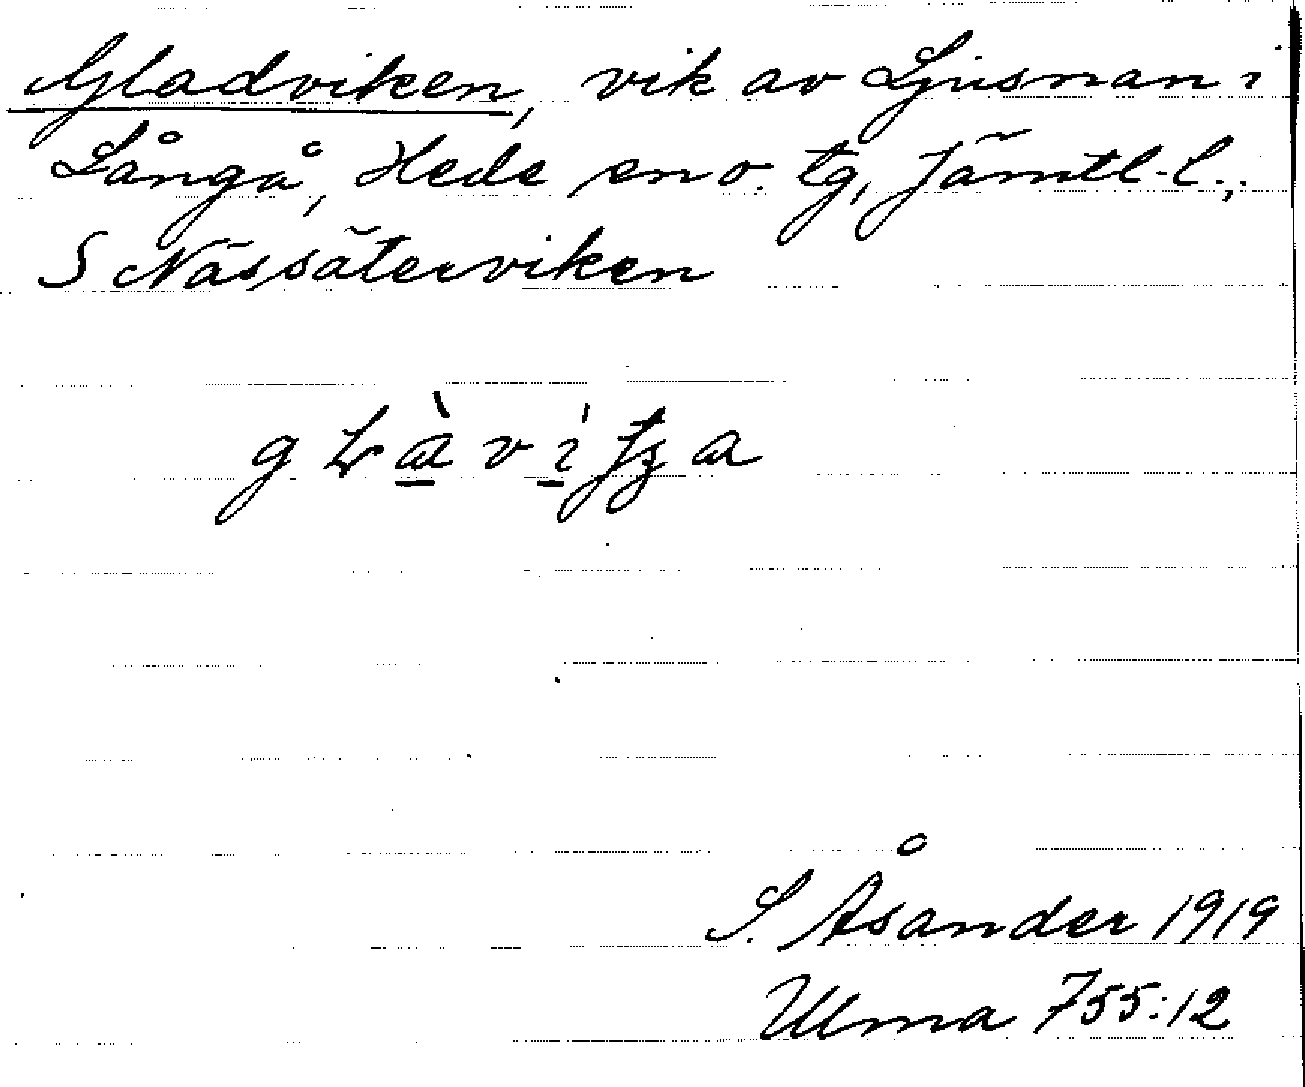 Gladviken, vik av Ljusnan i
Långå, Hede sn o. tg, Jämtl. l.;
S Nässäterviken
S. Åsander 1919
Ulma 755:12